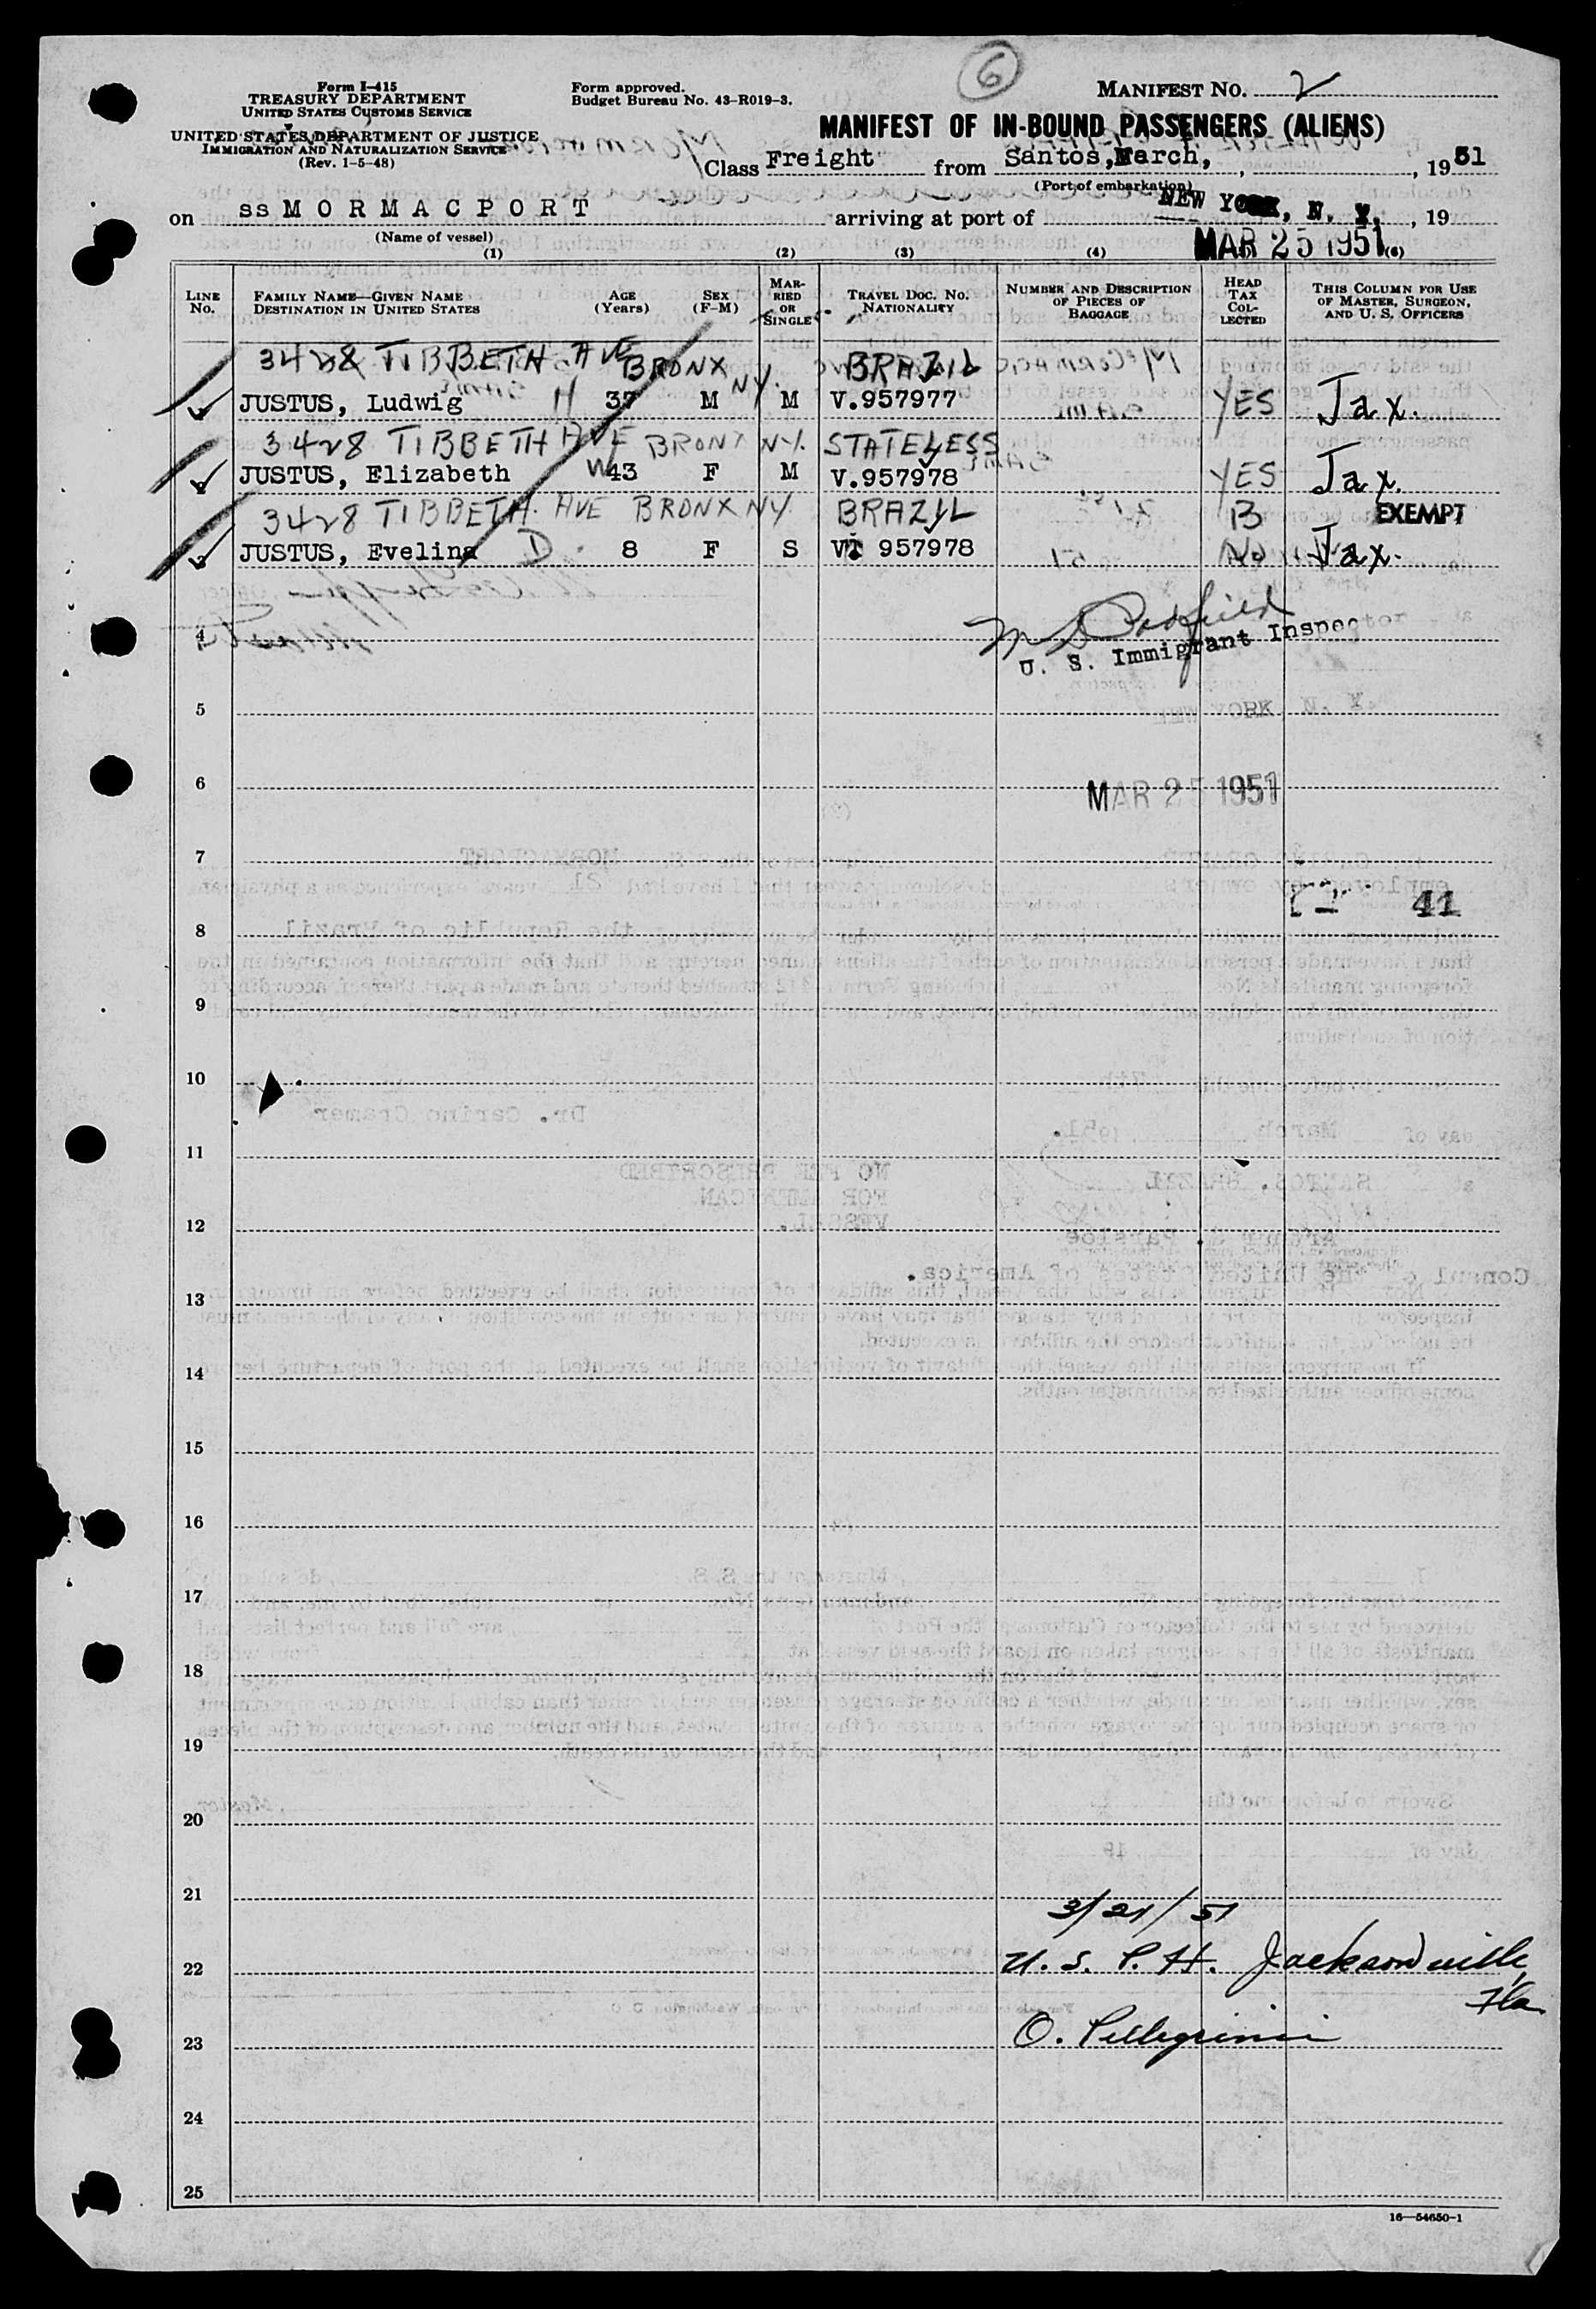 6
Form I-415
TREASURY DEPARTMENT
UNITED STATES CUSTOMS SERVICE
UNITED STATES DEPARTMENT OF JUSTICE
IMMIGRATION AND NATURALIZATION SERVICE
(Rev. 1-5-48)
Form approved.
Budget Bureau No. 43-R019-3.
MANIFEST NO. 2
MANIFEST OF IN-BOUND PASSENGERS (ALIENS)
Class Freight from Santos, March, , 1951
(Port of embarkation)
on ss MORMACPORT arriving at port of NEW YORK, N. Y., 19
(Name of vessel)
MAR 25 1951
(1) (2) (3) (4) (6)
LINE No. FAMILY NAME—GIVEN NAME DESTINATION IN UNITED STATES AGE (Years) SEX (F-M) MARRIED OR SINGLE TRAVEL DOC. NO. NATIONALITY NUMBER AND DESCRIPTION OF PIECES OF BAGGAGE HEAD TAX COLLECTED THIS COLUMN FOR USE OF MASTER, SURGEON, AND U. S. OFFICERS
3428 TIBBETH AVE BRONX NY. BRAZIL
JUSTUS, Ludwig H 37 M M V.957977 YES Jax.
3428 TIBBETH AVE BRONX NY. STATELESS
JUSTUS, Elizabeth W 43 F M V.957978 YES Jax.
3428 TIBBETH AVE BRONX NY BRAZYL B EXEMPT
JUSTUS, Evelina D. 8 F S 957978 No Jax.
4
U. S. Immigrant Inspector
5
6
MAR 25 1951
7
41
8
9
10
11
12
13
14
15
16
17
18
19
20
21
3/21/51
22
U. S. P. H. Jacksonville, Fla.
23
O. Pellegrini
24
25
16—54650-1